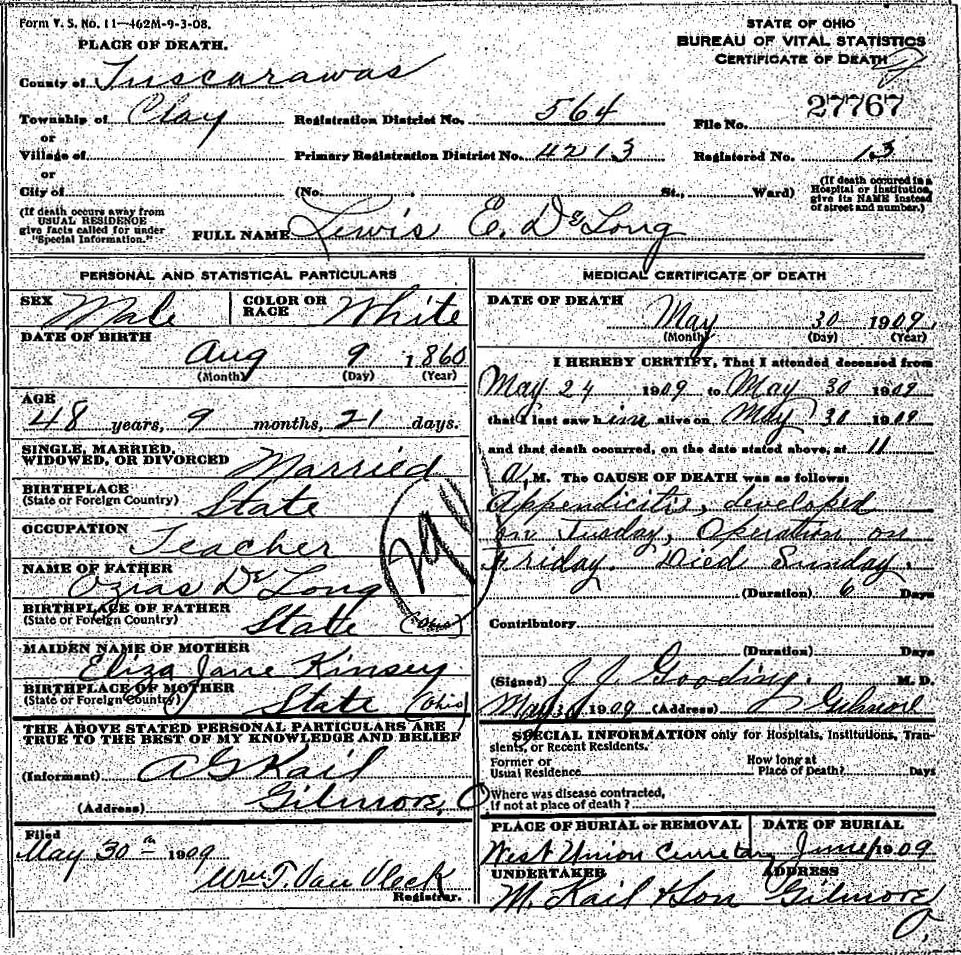 Form V. S. No. 11—462M-9-3-08.
PLACE OF DEATH.
STATE OF OHIO
BUREAU OF VITAL STATISTICS
CERTIFICATE OF DEATH
County of Tuscarawas
Township of Clay
Registration District No. 564
File No. 27767
or
Village of
Primary Registration District No. 4213
Registered No. 13
or
City of
(No. St., Ward)
(If death occured in a
Hospital or Institution,
give its NAME instead
of street and number.)
(If death occurs away from
USUAL RESIDENCE
give facts called for under
"Special Information.")
FULL NAME Lewis E. DeLong
PERSONAL AND STATISTICAL PARTICULARS
SEX Male
COLOR OR
RACE White
DATE OF BIRTH
Aug 9 1860
(Month) (Day) (Year)
AGE
48 years, 9 months, 21 days.
SINGLE, MARRIED,
WIDOWED, OR DIVORCED Married
BIRTHPLACE
(State or Foreign Country) State
OCCUPATION
Teacher
NAME OF FATHER
Ozias DeLong
BIRTHPLACE OF FATHER
(State or Foreign Country) State (Ohio)
MAIDEN NAME OF MOTHER
Eliza Jane Kinsey
BIRTHPLACE OF MOTHER
(State or Foreign Country) State (Ohio)
THE ABOVE STATED PERSONAL PARTICULARS ARE
TRUE TO THE BEST OF MY KNOWLEDGE AND BELIEF
(Informant) A G Kail
(Address) Gilmore, O
Filed
May 30th 1909
Wm T. Van Vleck
Registrar.
MEDICAL CERTIFICATE OF DEATH
DATE OF DEATH
May 30 1909
(Month) (Day) (Year)
I HEREBY CERTIFY, That I attended deceased from
May 24 1909 to May 30 1909
that I last saw him alive on May 30 1909
and that death occurred, on the date stated above, at 11
A. M. The CAUSE OF DEATH was as follows:
Appendicitis, developed
on Tusday, Operation on
Friday. Died Sunday.
(Duration) 6 Days
Contributory
(Duration) Days
(Signed) J J Gooding. M. D.
May 30 1909 (Address) Gilmore
SPECIAL INFORMATION only for Hospitals, Institutions, Tran-
sients, or Recent Residents.
Former or
Usual Residence
How long at
Place of Death? Days
Where was disease contracted,
If not at place of death?
PLACE OF BURIAL or REMOVAL
West Union Cemetary
DATE OF BURIAL
June 1 1909
UNDERTAKER
M. Kail & Son
ADDRESS
Gilmore